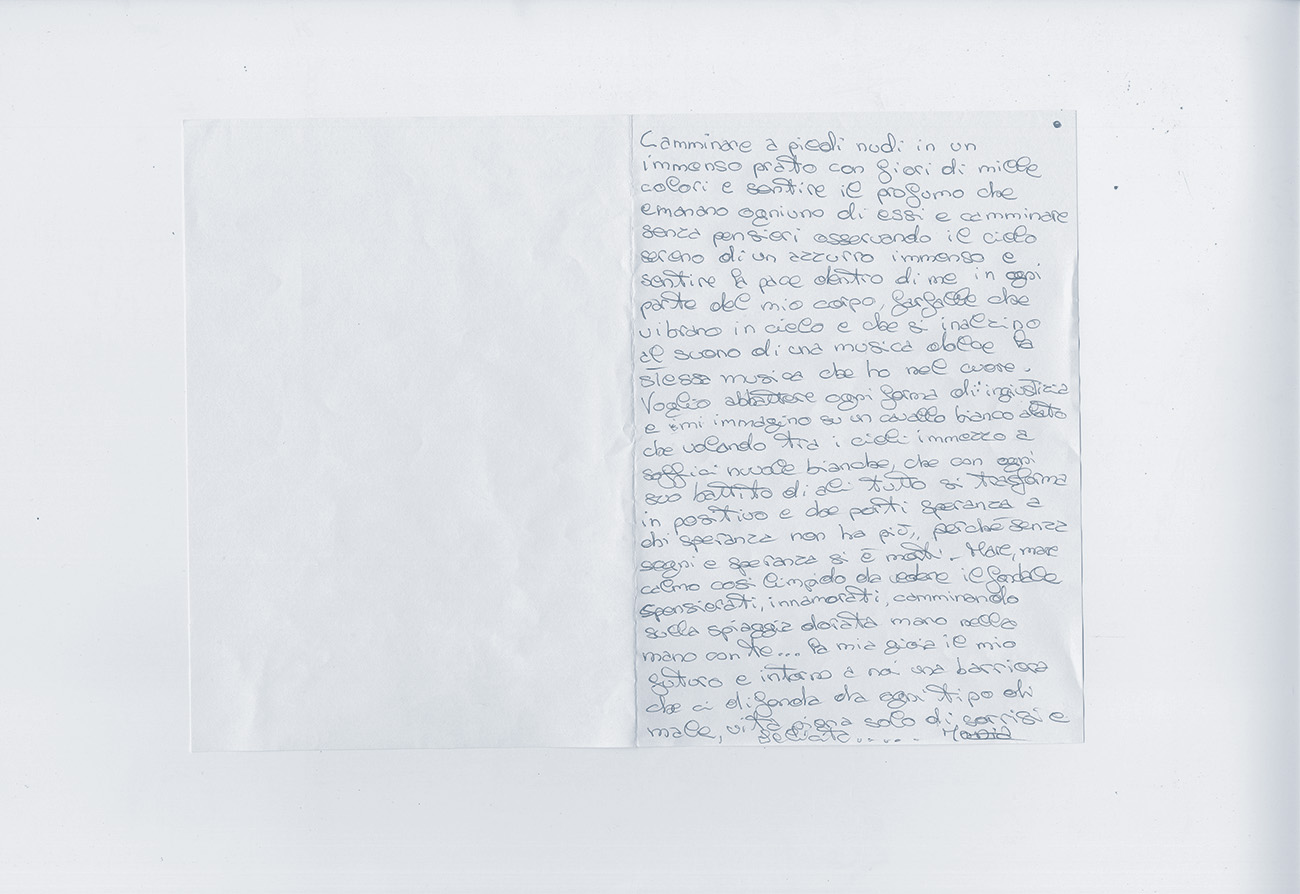 Camminare a piedi nudi in un
immenso prato con fiori di mille
colori e sentire il profumo che
emanano ogniuno di essi e camminare
senza pensieri osservando il cielo
sereno di un azzurro immenso e
sentire la pace dentro di me in ogni
parte del mio corpo, farfalle che
vibrano in cielo e che si inalzino
al suono di una musica dolce la
stessa musica che ho nel cuore.
Voglio abbattere ogni forma di ingiustizia
e mi immagino su un cavallo bianco alato
che volando tra i cieli immezzo a
soffici nuvole bianche, che con ogni
suo battito di ali tutto si trasforma
in positivo e che porti speranza a
chi speranza non ha più, perchè senza
sogni e speranza si è morti. Mare, mare
calmo così limpido da vedere il fondale
spensierati, innamorati, camminando
sulla spiaggia dorata mano nella
mano con te... la mia gioia il mio
futuro e intorno a noi una barriera
che ci difenda da ogni tipo di
male, vita piena solo di sorrisi e
felicità......